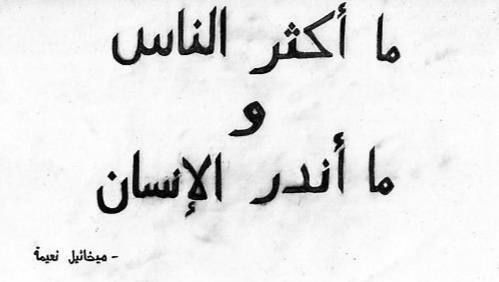 ما أكثر الناس
و
ما أندر الإنسان
- ميخائيل نعيمة